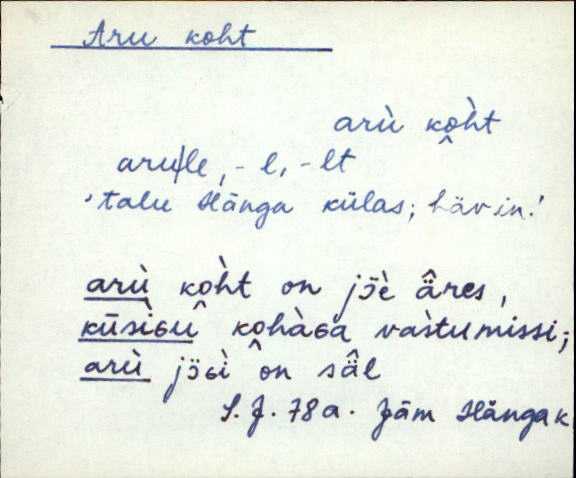 Aru koht
arù ko̭ht
aru|le, -l, -lt
'talu Hänga külas; hävin.'
arù ko̭ht on jɔ̈è ä̂res,
kūsìɢu ko̭hàɢa vastumissi;
arù jɔ̈ɢì on sä̂l
S. J. 78 a. Jäm Hänga k